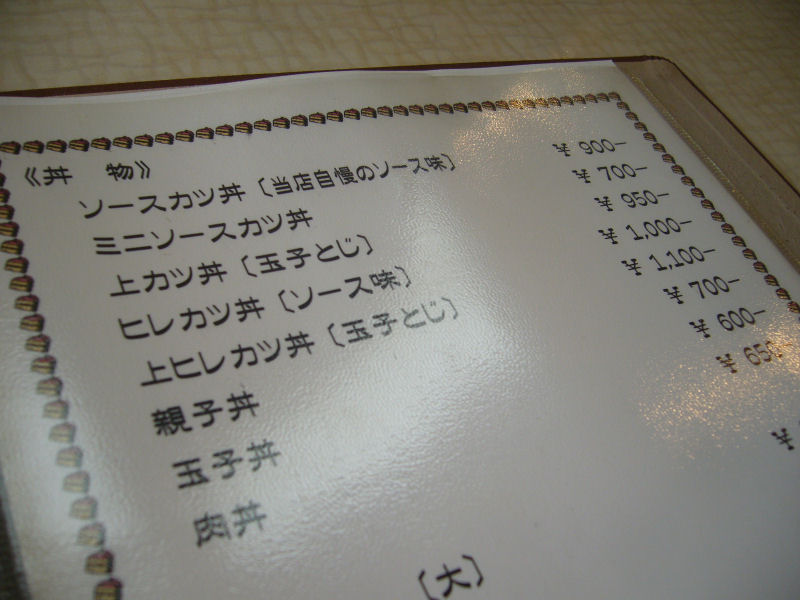 《丼　物》
ソースカツ丼〔当店自慢のソース味〕 ¥ 900-
ミニソースカツ丼 ¥ 700-
上カツ丼〔玉子とじ〕 ¥ 950-
ヒレカツ丼〔ソース味〕 ¥ 1,000-
上ヒレカツ丼〔玉子とじ〕 ¥ 1,100-
親子丼 ¥ 700-
玉子丼 ¥ 600-
丼 ¥ 650
〔大〕 ¥